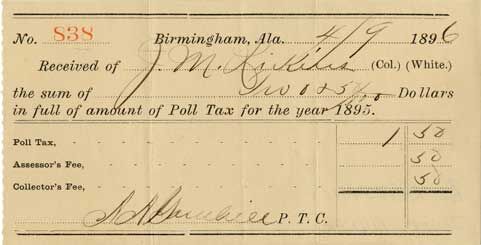 No. 838 Birmingham, Ala. 4/9 1896
Received of J. M. (Col.) (White.)
the sum of Two & 50/100 Dollars
in full of amount of Poll Tax for the year 1895.
Poll Tax, 1 50
Assessor's Fee, 50
Collector's Fee, 50
P. T. C.